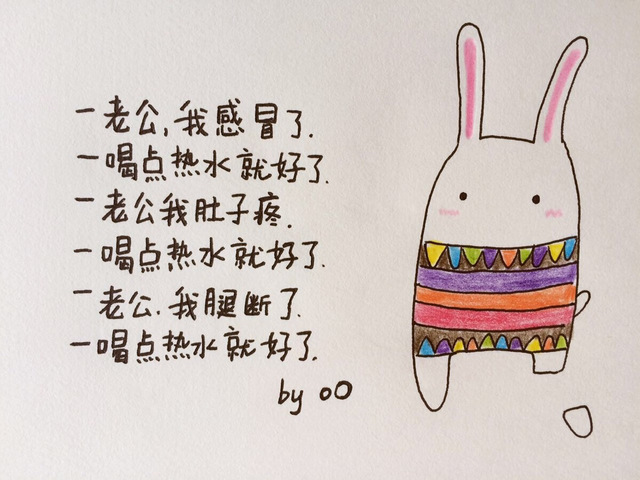 一老公,我感冒了.
一喝点热水就好了.
一老公我肚子疼.
一喝点热水就好了.
一老公.我腿断了.
一喝点热水就好了.
by oO